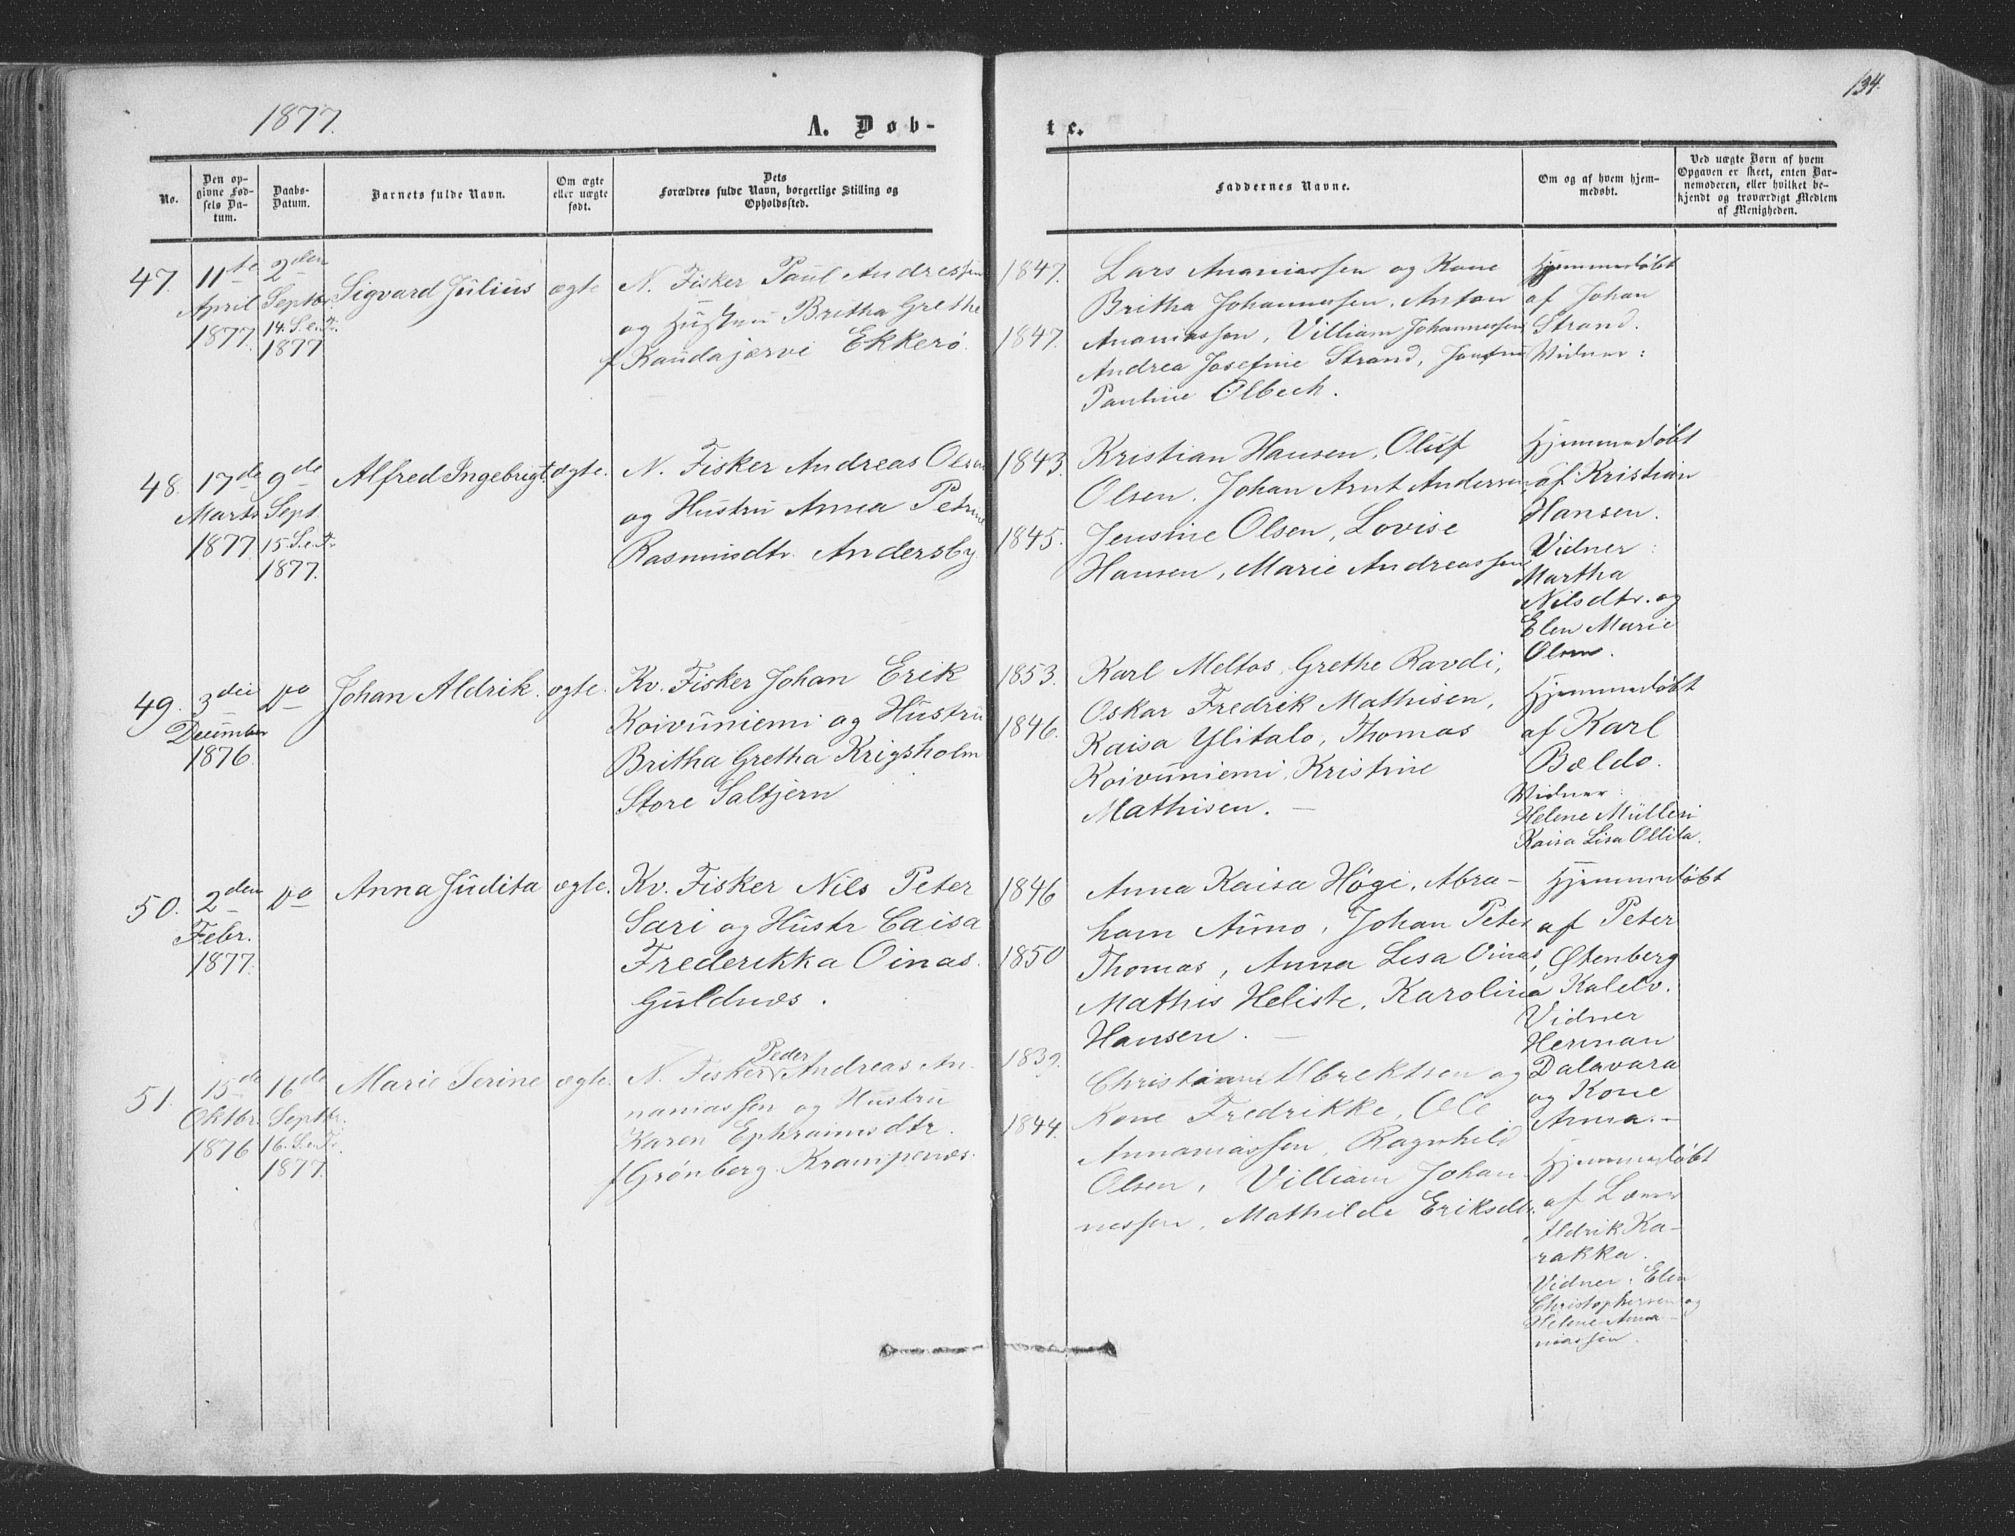 1877.
A. Døb-
te.
134.
No.
Den op-
givne Fød-
sels Da-
tum.
Daabs-
Datum.
Barnets fulde Navn.
Om ægte
eller uægte
født.
Dets
Forældres fulde Navn, borgerlige Stilling og
Opholdssted.
Faddernes Navne.
Om og af hvem hjem-
medøbt.
Ved uægte Børn af hvem
Opgaven er skeet, enten Bar-
nemoderen, eller hvilket be-
kjendt og troværdigt Medlem
af Menigheden.
47.
11te
April
1877.
2den
Septbr
14. S. e. Tr.
1877
Sigvard Julius
ægte
N. Fisker Paul Andressen
og Hustru Britha Grethe
f Kandajærvi Ekkerø.
1847.
1847.
Lars Ananiassen og Kone
Britha Johannessen, Anton
Ananiassen, Villiam Johannessen
Andrea Josefine Strand,
Pauline Olbech.
Hjemmedøbt
af Johan
Strand.
Vidner:
48.
17de
Marts
1877
9de
Sept.
15. S. e. Tr.
1877.
Alfred Ingebrigt.
ægte.
N. Fisker Andreas Olsen
og Hustru Anna Petrine
Rasmusdtr. Andersby.
1843.
1845.
Kristian Hansen, Oluf
Olsen. Johan Arnt Andersen
Jensine Olsen, Lovise
Hansen, Marie Andreassen
Hjemmedøbt
af Kristian
Hansen.
Vidner:
Martha
Nilsdtr. og
Elen Marie
Olsen.
49.
3die
December
1876.
Do
Johan Aldrik.
ægte.
Kv. Fisker Johan Erik
Koivuniemi og Hustru
Britha Gretha Krigsholm
Store Saltjern
1853.
1846.
Karl Meltos, Grethe Ravdi,
Oskar Fredrik Mathisen,
Kaisa Ylitalo, Thomas
Koivuniemi, Kristine
Mathisen. —
Hjemmedøbt
af Karl
Bældo.
Vidner:
Helene Mülleri
Kaisa Lisa Ollila.
50.
2den
Febr.
1877.
Do
Anna Judita
ægte.
Kv. Fisker Nils Peter
Sari og Hustr Caisa
Frederikka Oinas.
Guldnæs.
1846
1850
Anna Kaisa Høgi, Abra-
ham Aimo, Johan Peter
Thomas, Anna Lisa Oinas,
Mathis Heliste, Karolina
Hansen. —
Hjemmedøbt
af Peter
Østenberg
Kalelv.
Vidner
Herman
Dalavara
og Kone
Anna. —
51.
15de
Oktbr.
1876
16de
Septbr.
16. S. e. Tr.
1877.
Marie Serine
ægte.
Peder
N. Fisker Andreas An-
naniassen og Hustru
Karen Ephraimsdtr.
f Grønberg. Krampenæs.
1839.
1844.
Christian Albrektsen og
Kone Fredrikke, Ole
Annaniassen, Ragnhild
Olsen, Villiam Johan-
nessen, Mathilde Eriksdtr.
Hjemmedøbt
af Læns
Aldrik Ka-
rakka.
Vidner: Elen
Christophersen og
Helene Anna-
niassen.